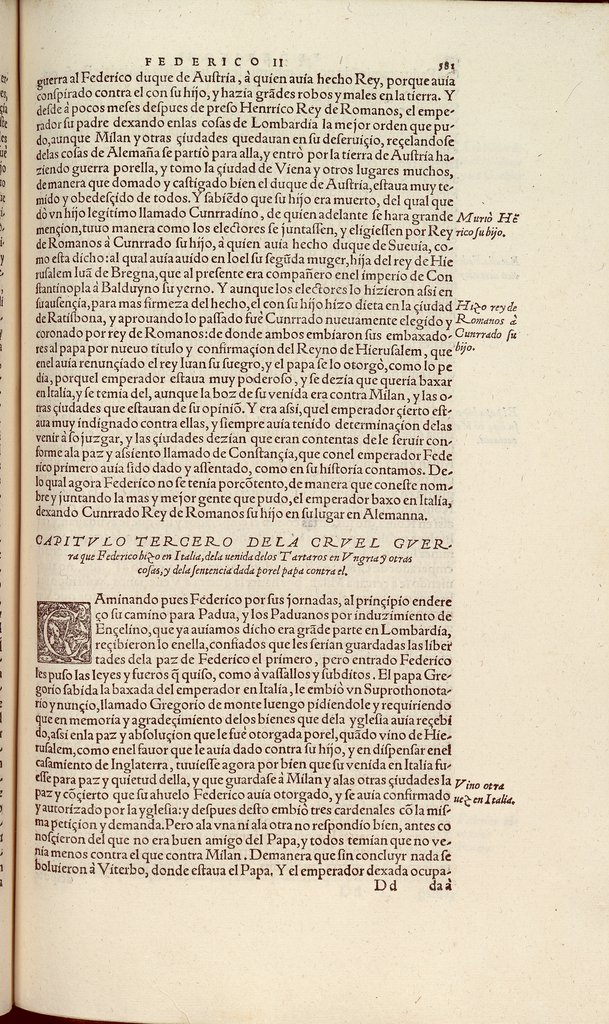 FEDERICO II
581
guerra al Federico duque de Austria, à quien auía hecho Rey, porque auía
conspirado contra el con su hijo, y hazía grãdes robos y males en la tierra. Y
desde à pocos meses despues de preso Henrrico Rey de Romanos, el empe-
rador su padre dexando enlas cosas de Lombardía la mejor orden que pu-
do, aunque Mílan y otras çiudades quedauan en su deseruiçio, reçelandose
delas cosas de Alemaña se partío para alla, y entrò por la tierra de Austria ha-
ziendo guerra porella, y tomo la çiudad de Viena y otros lugares muchos,
de manera que domado y castigado bien el duque de Austria, estaua muy te-
mido y obedesçido de todos. Y sabiẽdo que su hijo era muerto, del qual que
dò vn hijo legítimo llamado Cunrradíno, de quien adelante se hara grande
mençion, tuuo manera como los electores se juntassen, y eligiessen por Rey
de Romanos à Cunrrado su hijo, à quien auía hecho duque de Sueuía, co-
mo esta dicho: al qual auía auido en Ioel su segũda muger, hija del rey de Hie
rusalem Iuã de Bregna, que al presente era compañero enel imperio de Con
stantinopla à Balduyno su yerno. Y aunque los electores lo hizieron assi en
su ausençia, para mas firmeza del hecho, el con su hijo hizo dieta en la çiudad
de Ratisbona, y aprouando lo passado fuè Cunrrado nueuamente elegido y
coronado por rey de Romanos: de donde ambos embíaron sus embaxado-
res al papa por nueuo titulo y confirmaçion del Reyno de Hierusalem, que
enel auía renunçiado el rey Iuan su suegro, y el papa se lo otorgò, como lo pe
día, porquel emperador estaua muy poderoso, y se dezia que quería baxar
en Italia, y se temía del, aunque la boz de su venida era contra Mílan, y las o-
tras çiudades que estauan de su opiniõ. Y era assi, quel emperador çierto est-
aua muy indignado contra ellas, y siempre auía tenido determinaçion delas
venir à sojuzgar, y las çiudades dezían que eran contentas de le seruir con-
forme ala paz y assiento llamado de Constançia, que conel emperador Fede
rico primero auía sido dado y assentado, como en su historia contamos. De-
lo qual agora Federico no se tenía porcõtento, de manera que coneste nom-
bre y juntando la mas y mejor gente que pudo, el emperador baxo en Italia,
dexando Cunrrado Rey de Romanos su hijo en su lugar en Alemanna.
Murio Hẽ
rico su hijo.
Hizo rey de
Romanos à
Cunrrado su
hijo.
CAPITVLO TERCERO DELA CRVEL GVER-
ra que Federico hizo en Italia, dela uenida delos Tartaros en Vngria y otras
cosas, y dela sentencia dada por el papa contra el.
CAminando pues Federico por sus jornadas, al prinçipio endere
ço su camino para Padua, y los Paduanos por induzimiento de
Ençelino, que ya auiamos dicho era grãde parte en Lombardia,
reçibieron lo enella, confiados que les serían guardadas las liber
tades dela paz de Federico el primero, pero entrado Federico
les puso las leyes y fueros q̃ quiso, como à vassallos y subditos. El papa Gre-
gorio sabida la baxada del emperador en Italia, le embiò vn Suprothonota-
rio y nunçio, llamado Gregorio de monte luengo pidiendole y requiriendo
que en memoria y agradeçimiento delos bienes que dela yglesia auía reçebi
do, assi enla paz y absoluçion que le fuè otorgada porel, quãdo vino de Hie-
rusalem, como enel fauor que le auía dado contra su hijo, y en dispensar enel
casamiento de Inglaterra, tuuiesse agora por bien que su venida en Italia fu-
esse para paz y quietud della, y que guardase à Mílan y alas otras çiudades la
paz y cõçierto que su ahuelo Federico auía otorgado, y se auía confirmado
y autorizado por la yglesia: y despues desto embiò tres cardenales cõ la mis-
ma petiçion y demanda. Pero ala vna ni ala otra no respondio bien, antes co
nosçieron del que no era buen amigo del Papa, y todos temían que no ve-
nía menos contra el que contra Mílan. Demanera que sin concluyr nada se
boluieron à Viterbo, donde estaua el Papa. Y el emperador dexada ocupa-
Vino otra
uez en Italia.
Dd
da à